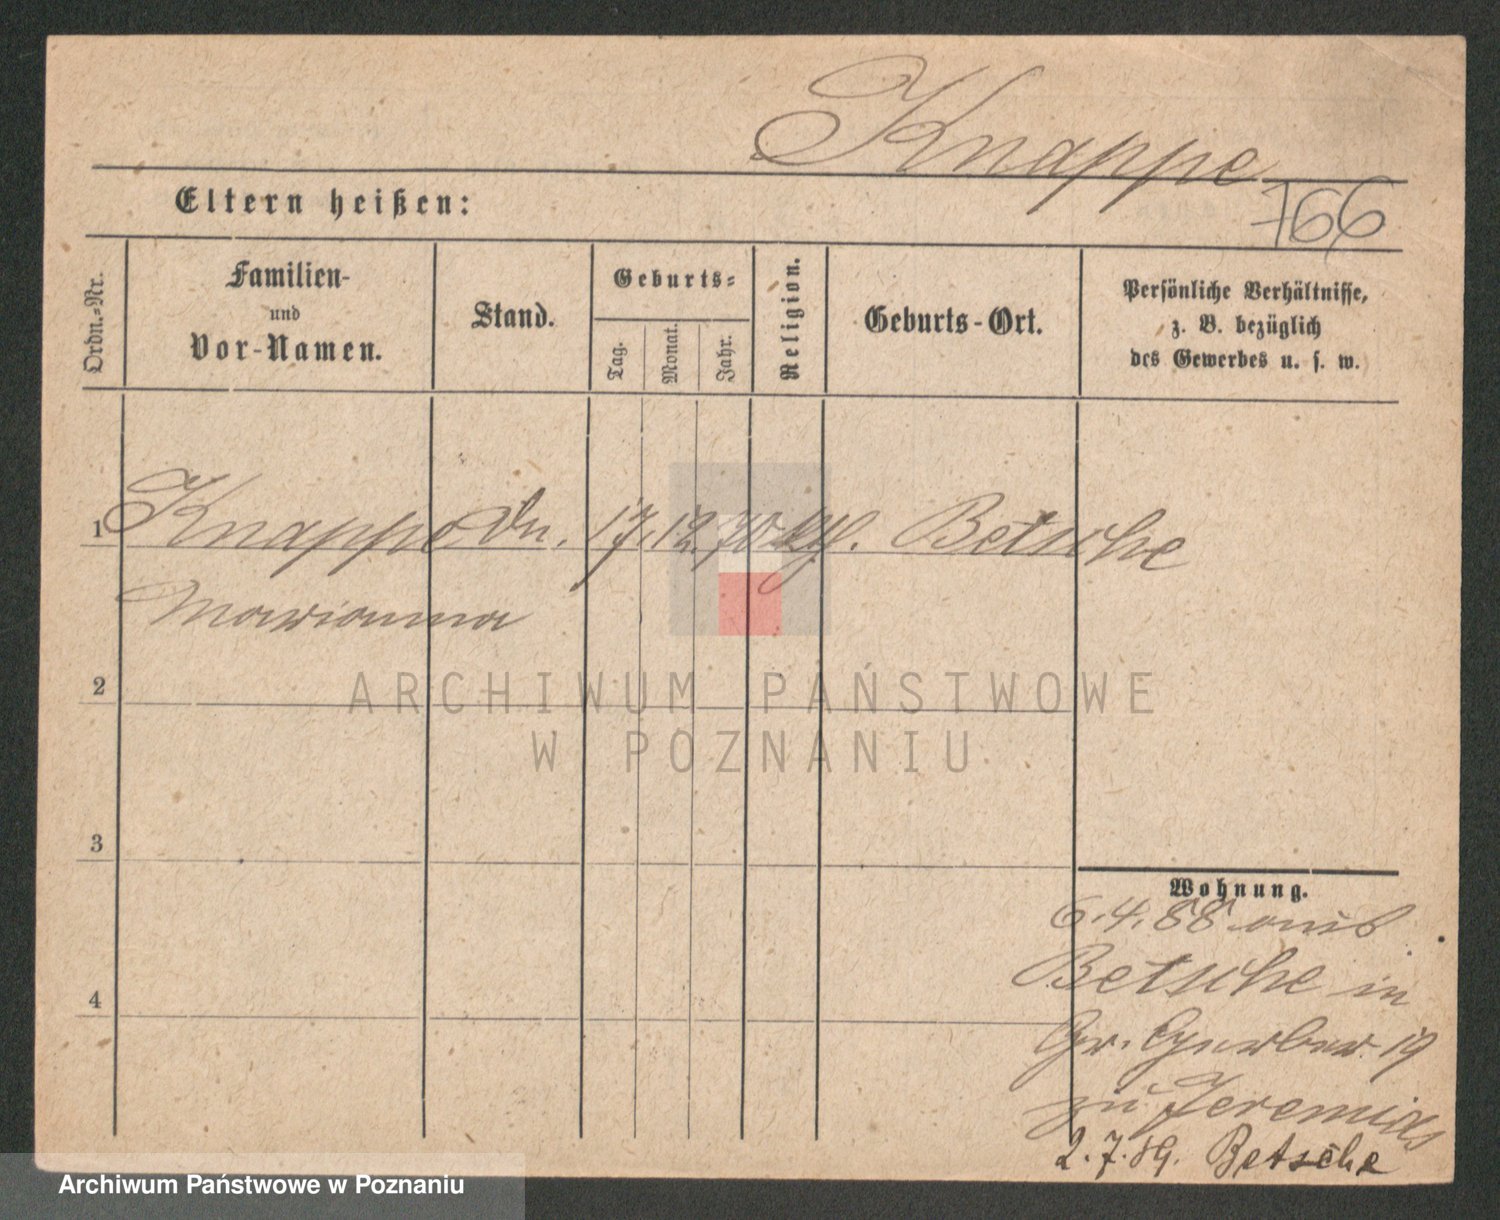 Knappe
Eltern heißen:
766
Ordn.-Nr.
Familien-
und
Vor-Namen.
Stand.
Geburts-
Tag.
Monat.
Jahr.
Religion.
Geburts-Ort.
Persönliche Verhältnisse,
z. B. bezüglich
des Gewerbes u. s. w.
1 Knappe Dn. 17. 12. 70 kth. Betsche
Marianna
2
ARCHIWUM PAŃSTWOWE
W POZNANIU
3
Wohnung.
6.4.88 aus
Betsche in
4
Gr. Gerber. 19
zu Jeremias
2.7.89. Betsche
Archiwum Państwowe w Poznaniu